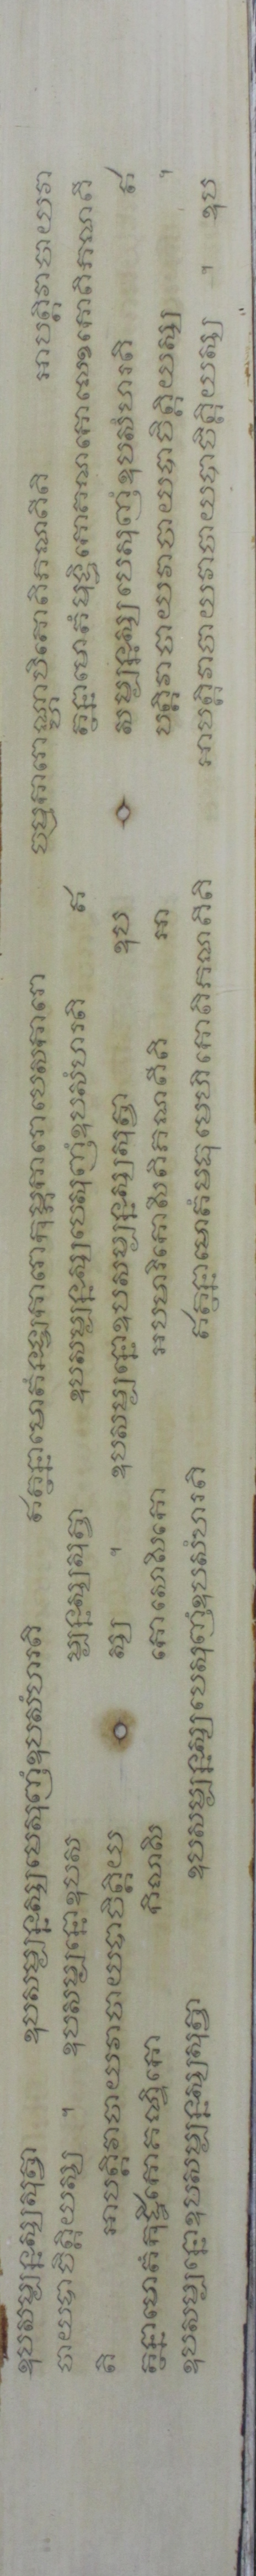 ឧបសម្បន្នស្ស សុត្វា ឧបសម្បន្នស្ស បេសុញំ ឧបសំហរតិ ឥត្ថន្នាមោ តំ នឡការោ កុម្ភការោ បេសការោ ចម្មការោ ណ្ហាបិតោតិ ភណតីតិ អាបត្តិ វាចាយ វា
ចាយ បាចិត្តិយស្ស ។ ឧបសម្បន្នោ ឧបស ម្បន្នស្ស សុត្វា ឧបសម្បន្នស្ស បេសុញំ ឧបសំហរតិ ឥ ត្ថន្នាមោ តំ មុទ្ធិកោ គណកោ លេខកោតិ ភណតី
តិ អាបត្តិ វាចាយ វាចាយ បាចិត្តិយ ស្ស ។ ឧបសម្បន្នោ ឧបសម្បន្នស្ស សុត្វា ឧប សម្បន្នស្ស បេសុញំ ឧបសំហរតិ ឥ
ត្ថន្នាមោ តំ កុដ្ឋិកោ គណ្ឌិកោ កិលាសិ កោ សោសិកោ អបមារិកោសីតិ ភណតីតិ អា បត្តិ វាចាយ វាចាយ បាចិត្តិយស្ស ។
ឧបសម្បន្នោ ឧបសម្បន្នស្ស សុត្វា ឧបសម្បន្នស្ស បេសុញំ ឧបសំហរតិ ឥត្ថន្នាមោ តំ មធុមេហិកោតិ ភណតីតិ អាបត្តិ វាចាយ វាចាយ បាចិត្តិយស្ស ។ ឧប